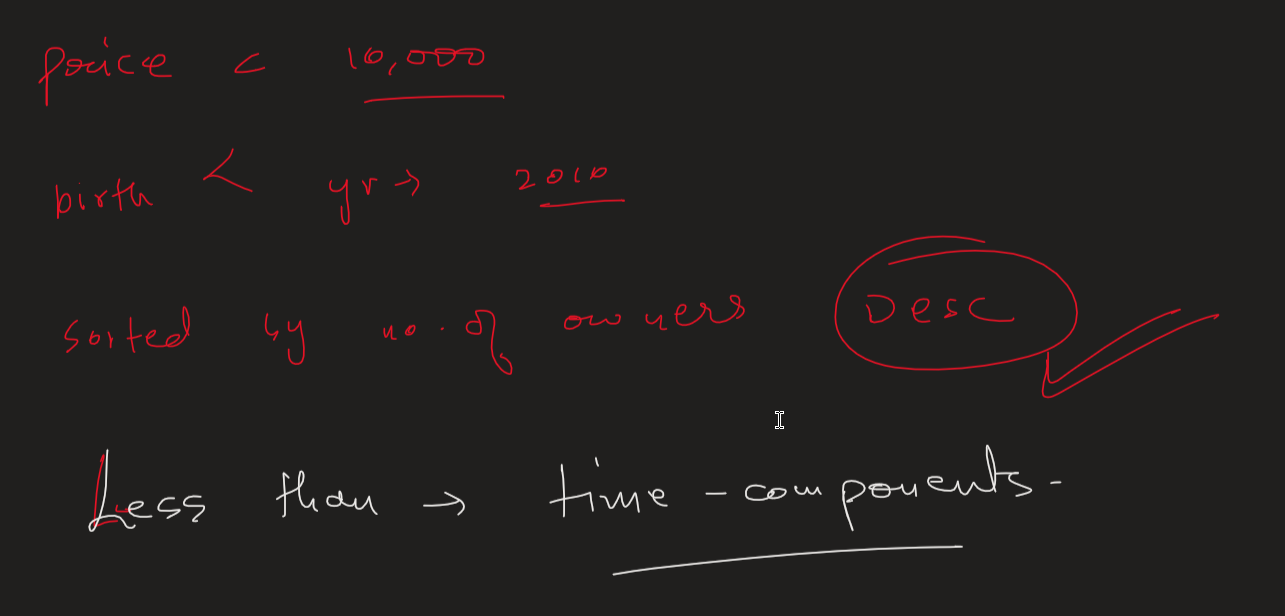 price < 10,000
birth < yr → 2010
sorted by no. of owners Desc
Less than → time - components -